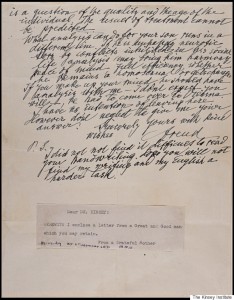 is a question of the quality and the age of the
individual. The result of treatment cannot
be predicted.
What analysis can do for your son runs in a
different line. If he is unhappy, neurotic,
torn by conflicts, inhibited in his social
life, analysis may bring him harmony,
peace of mind, full efficiency, whether
he remains a homosexual or gets changed.
If you make up your mind he should have
analysis with me I don't expect you
will he has to come over to Vienna.
I have no intention of leaving here.
However don't neglect to give me your
answer.
Sincerely yours with kind
wishes
Freud
P.S. I did not find it difficult to read
your handwriting. Hope you will not
find my writing and my English a
harder task.
Dear Dr. Kinsey:
Herewith I enclose a letter from a Great and Good man
which you may retain.
From a Grateful Mother